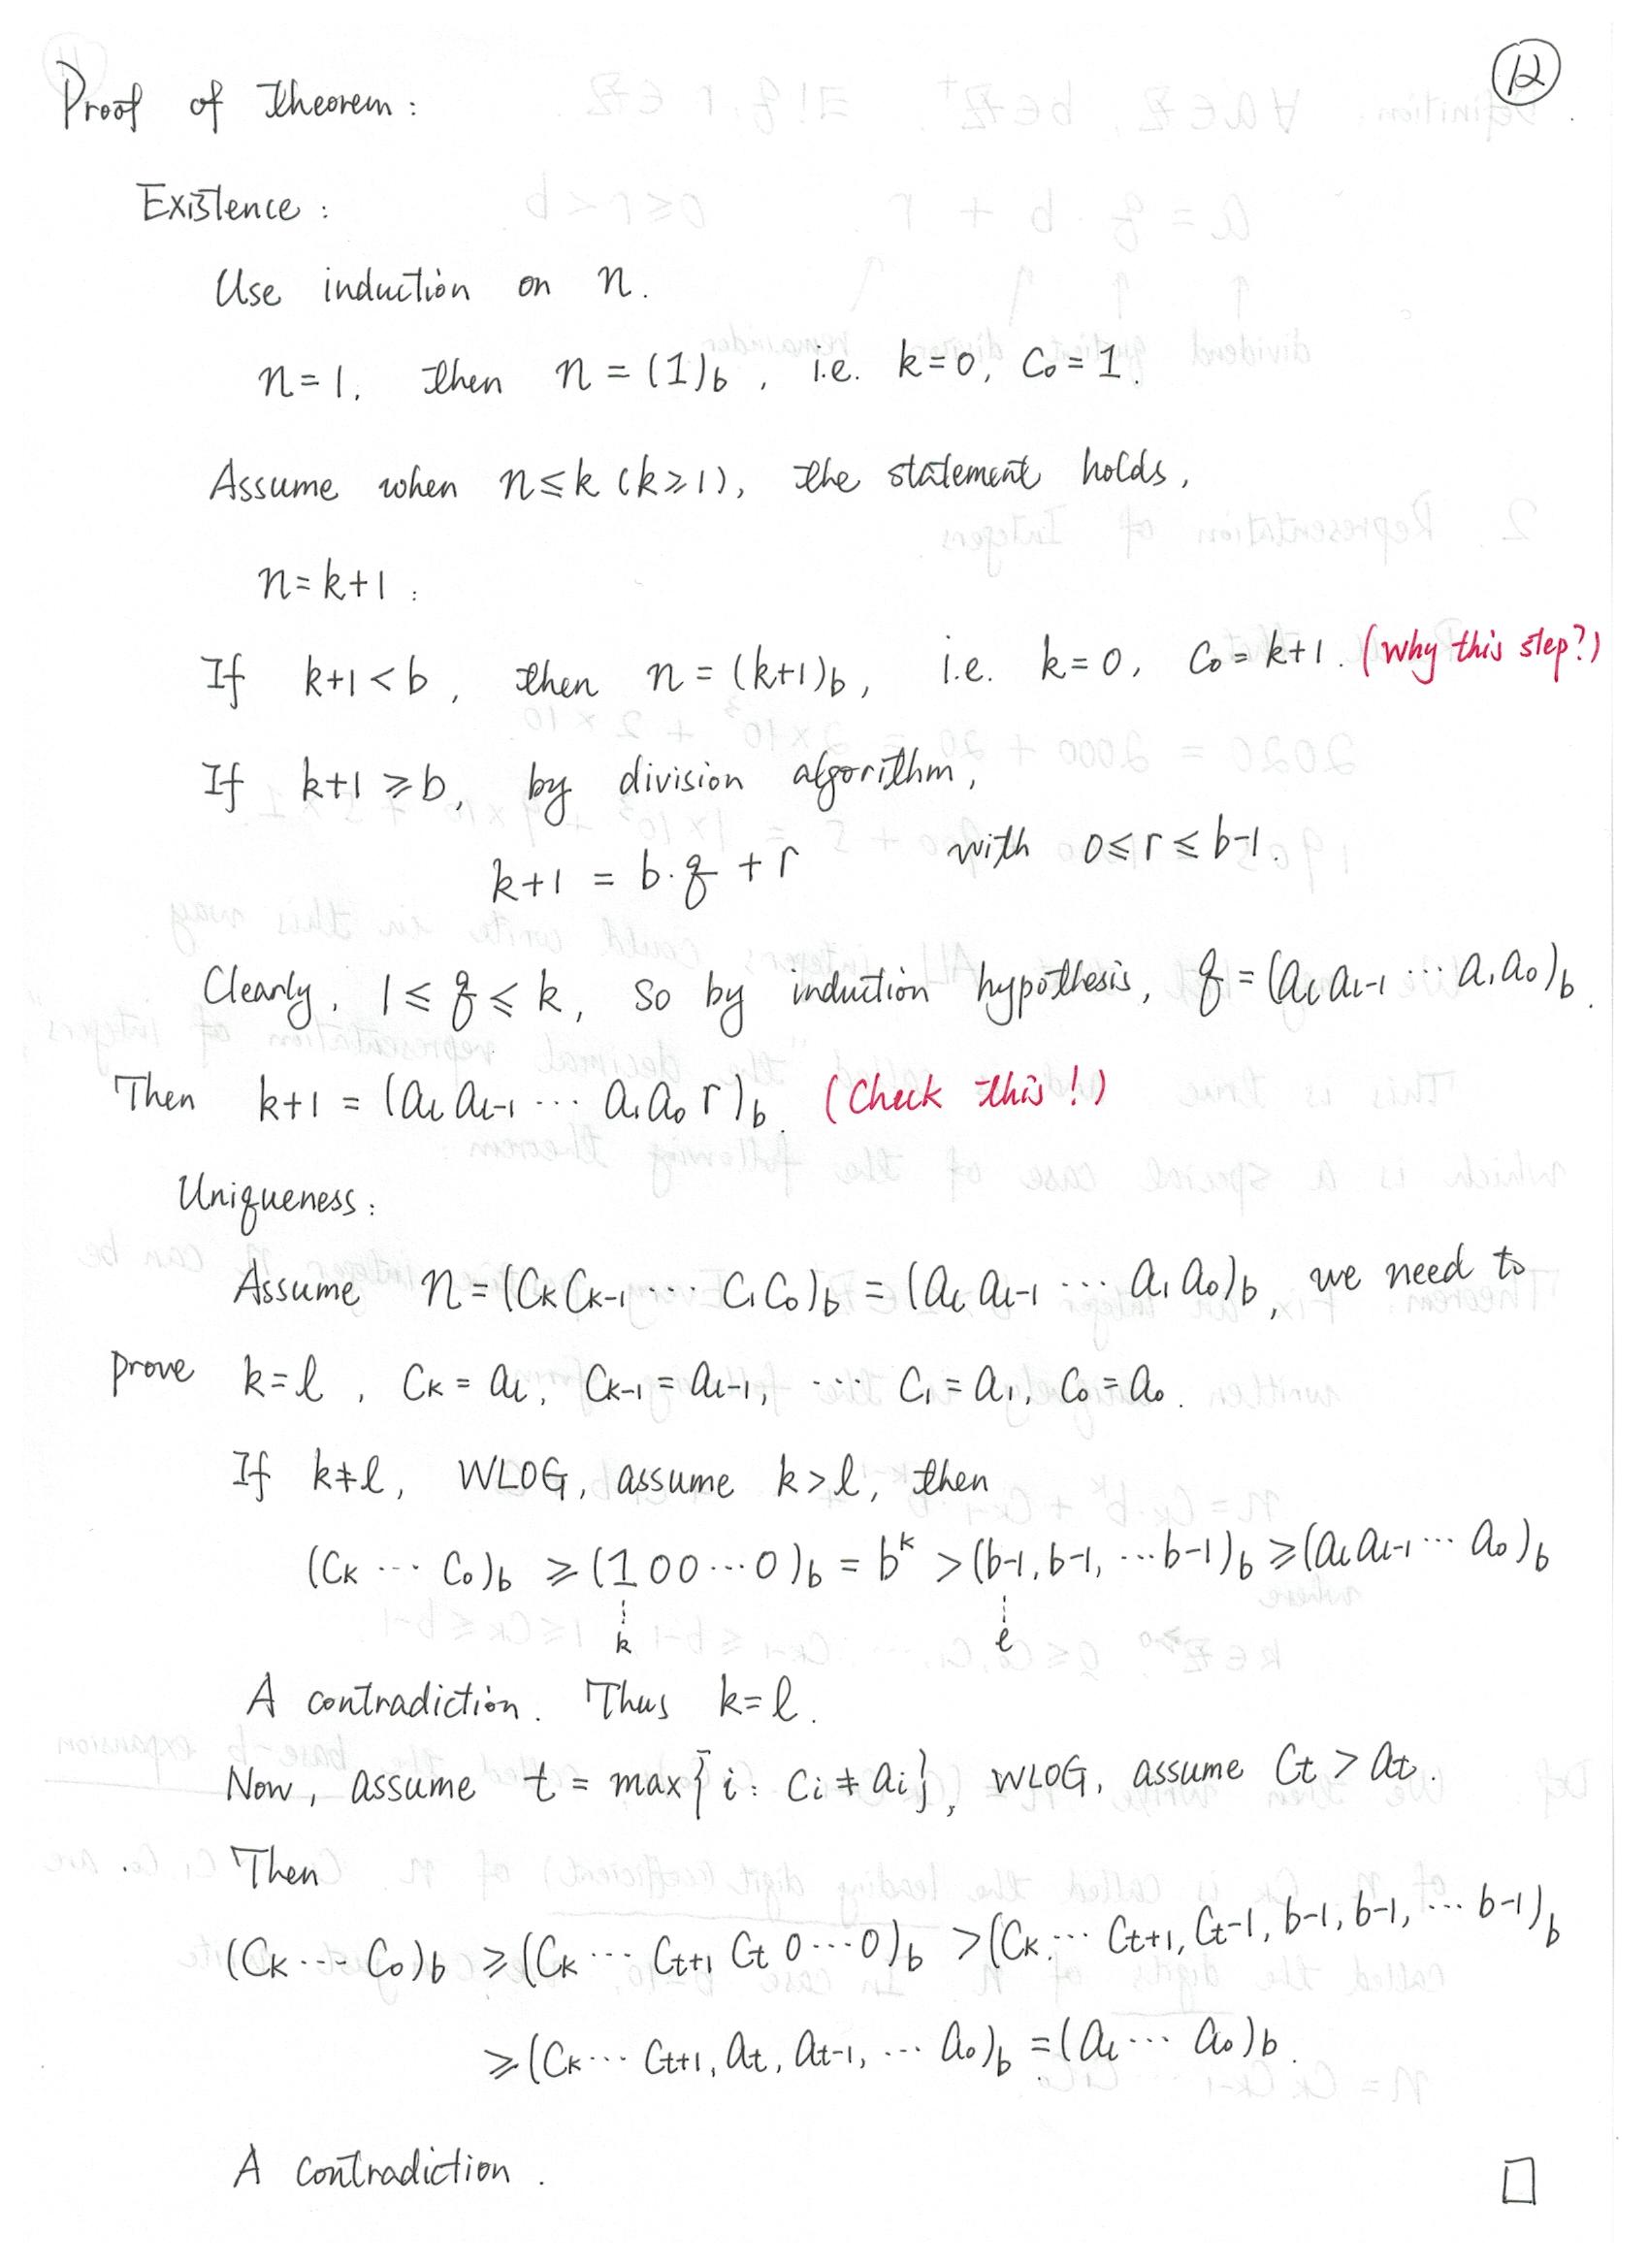 12
Proof of theorem:
Existence:
Use induction on n.
n=1, then n = (1)_b, i.e. k=0, C₀=1.
Assume when n≤k (k≥1), the statement holds,
n=k+1:
If k+1<b, then n = (k+1)_b, i.e. k=0, C₀=k+1. (Why this step?)
If k+1≥b, by division algorithm,
k+1 = b·q + r with 0≤r≤b-1.
Clearly, 1≤q≤k, so by induction hypothesis, q = (a_l a_{l-1} ··· a₁a₀)_b.
Then k+1 = (a_l a_{l-1} ··· a₁a₀ r)_b. (Check this!)
Uniqueness:
Assume n = (C_k C_{k-1} ··· C₁C₀)_b = (a_l a_{l-1} ··· a₁a₀)_b, we need to
prove k=l, C_k = a_l, C_{k-1} = a_{l-1}, ··· C₁=a₁, C₀=a₀.
If k≠l, WLOG, assume k>l, then
(C_k ··· C₀)_b ≥ (1 0 0 ··· 0)_b = b^k > (b-1, b-1, ··· b-1)_b ≥ (a_l a_{l-1} ··· a₀)_b
k l
A contradiction. Thus k=l.
Now, assume t = max{i: C_i ≠ a_i}, WLOG, assume C_t > a_t.
Then
(C_k ··· C₀)_b ≥ (C_k ··· C_{t+1} C_t 0 ··· 0)_b > (C_k ··· C_{t+1}, C_t-1, b-1, b-1, ··· b-1)_b
≥ (C_k ··· C_{t+1}, a_t, a_{t-1}, ··· a₀)_b = (a_l ··· a₀)_b.
A contradiction. □